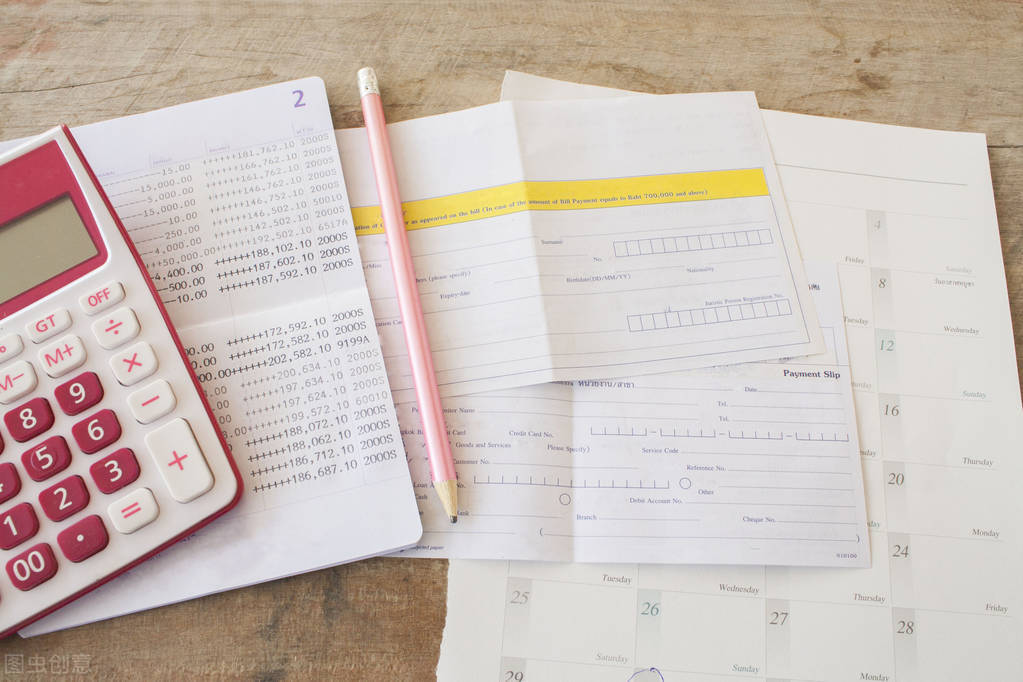 2
-15.00 ++++++181,762.10 2000S
-15,000.00 ++++++166,762.10 2000S
-5,000.00 ++++++161,762.10 2000S
-15,000.00 ++++++146,762.10 2000S
-250.00 ++++++146,512.10 2000S
-4,000.00 ++++++142,502.10 2000S
++50,000.00 ++++++192,502.10 6517A
-4,400.00 ++++++188,102.10 2000S
-500.00 ++++++187,602.10 2000S
-10.00 ++++++187,592.10 2000S
++++++172,592.10 2000S
++++++172,582.10 2000S
++++++202,582.10 9199A
++++++200,634.10 2000S
++++++197,634.10 2000S
++++++197,624.10 2000S
++++++199,572.10 60010
++++++188,072.10 2000S
++++++188,062.10 2000S
++++++186,712.10 2000S
++++++186,687.10 2000S
OFF
GT
÷
M+
×
M−
9
−
8
6
+
5
3
2
=
1
•
00
as appeared on the bill (In case of the amount of Bill Payment equals to Baht 700,000 and above)
Surname
No.
(please specify)
Birthdate(DD/MM/YY)
Nationality
Expiry-date
Juristic Person Registration No.
Payment Slip
หน่วยงาน/สาขา
Date
Name
Tel.
Tel.
Credit Card No.
Goods and Services
Please Specify)
Service Code
Customer No.
Reference No.
Other
Debit Account No.
Branch
Cheque No.
paper
010100
4
Friday
Saturday
8
วันอาสาฬหบูชา
Tuesday
Wednesday
12
Sunday
16
Thursday
20
Monday
24
Tuesday
Wednesday
Thursday
Friday
25
26
27
28
Saturday
Sunday
Monday
29
图虫创意